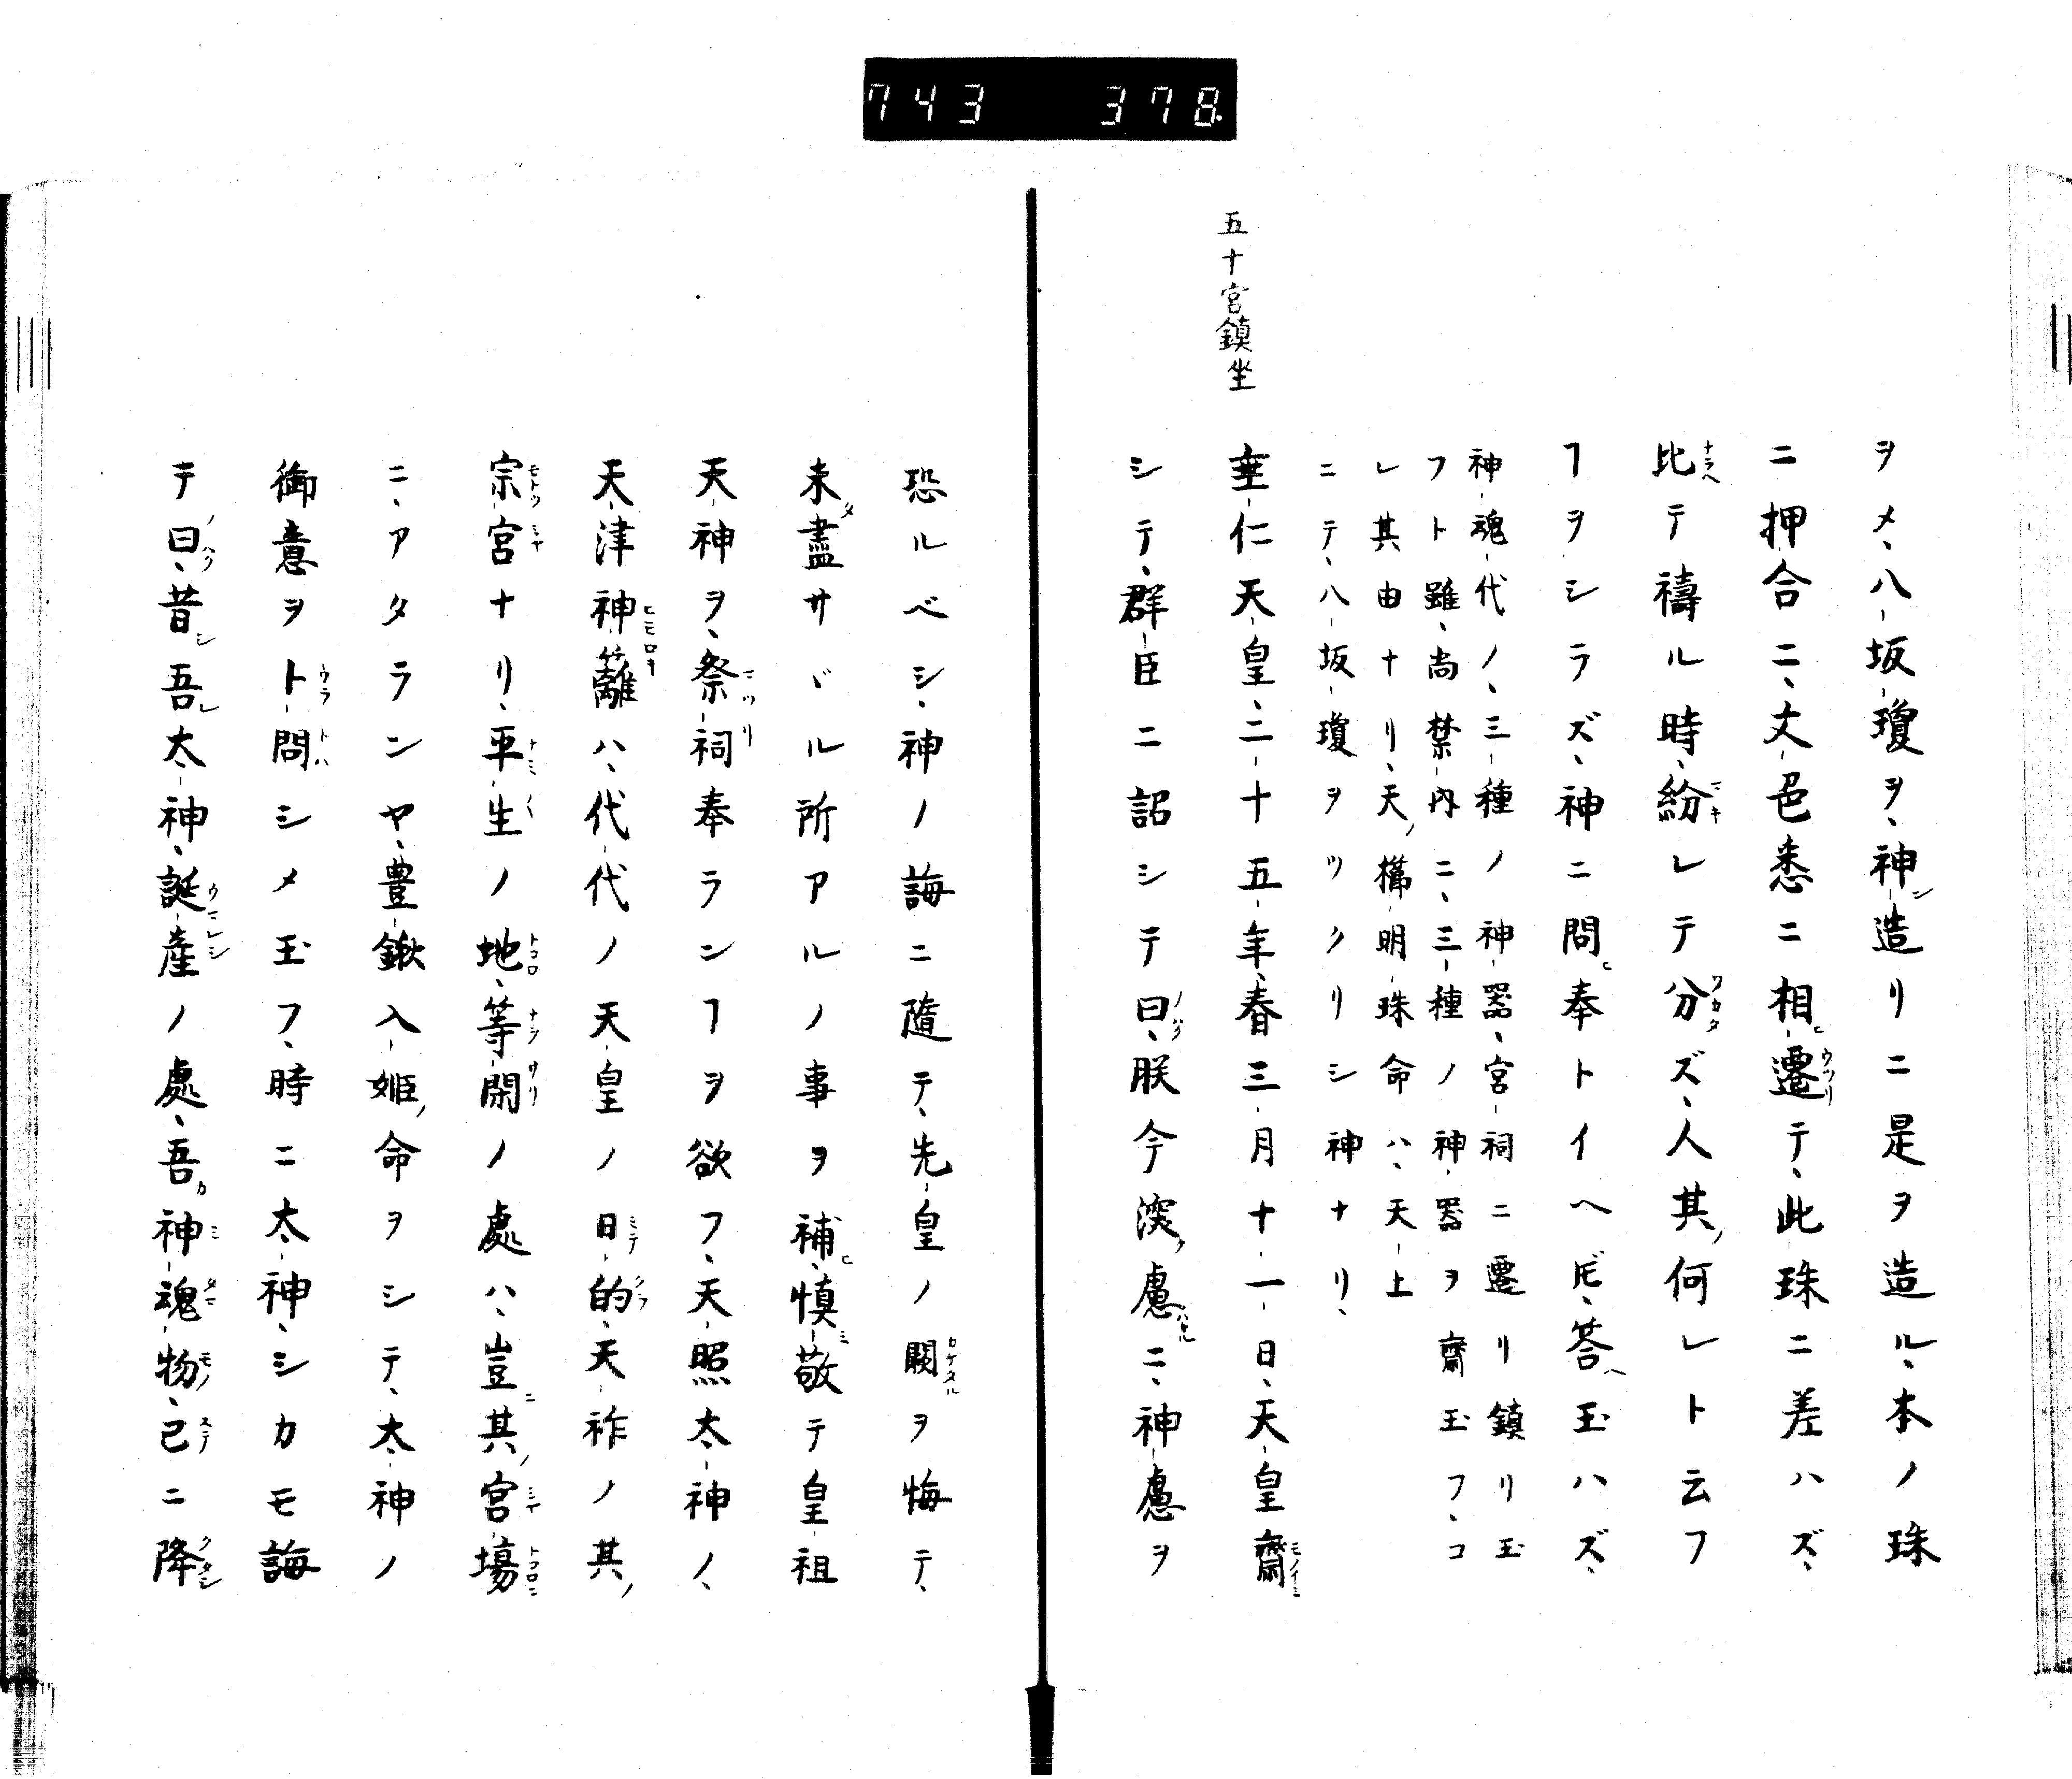 743 378
ヲメ、八坂瓊ヲ、神造リニ是ヲ造ル、本ノ珠
ニ押合ニ、丈色悉ニ相遷テ、此珠ニ差ハズ、
比テ禱ル時、紛レテ分ズ、人其何レト云フ
ヿヲシラズ、神ニ問奉トイヘ𪜈、答玉ハズ、
神魂代ノ、三種ノ神器、宮祠ニ遷リ鎮リ玉
フト雖、尚禁内ニ、三種ノ神器ヲ齋玉フ、コ
レ其由ナリ、天ノ櫛明珠命ハ、天上
ニテ、八坂瓊ヲツクリシ神ナリ、
五十宮鎮坐
垂仁天皇、二十五年、春三月十一日、天皇齋
シテ、群臣ニ詔シテ曰、朕今深ク慮ニ、神慮ヲ
恐ルベシ、神ノ誨ニ隨テ、先皇ノ闕ヲ悔テ、
未盡サヾル所アルノ事ヲ補、慎敬テ皇祖
天神ヲ、祭祠奉ランヿヲ欲フ、天照太神ノ、
天津神籬ハ、代代ノ天皇ノ日的、天祚ノ其ノ
宗宮ナリ、平生ノ地、等閑ノ處ハ、豈其ノ宮塲
ニ、アタランヤ、豊鍬入姫ノ命ヲシテ、太神ノ
御意ヲト問シメ玉フ、時ニ太神、シカモ誨
テ曰、昔吾太神、誕産ノ處、吾神魂物、已ニ降